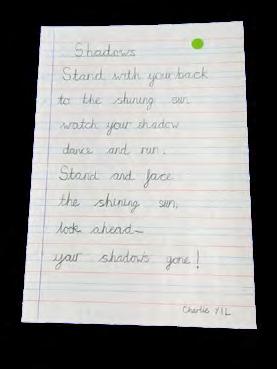 Shadows
Stand with your back
to the shining sun
watch your shadow
dance and run.
Stand and face
the shining sun,
look ahead—
your shadow's gone!
Charlie Y1L